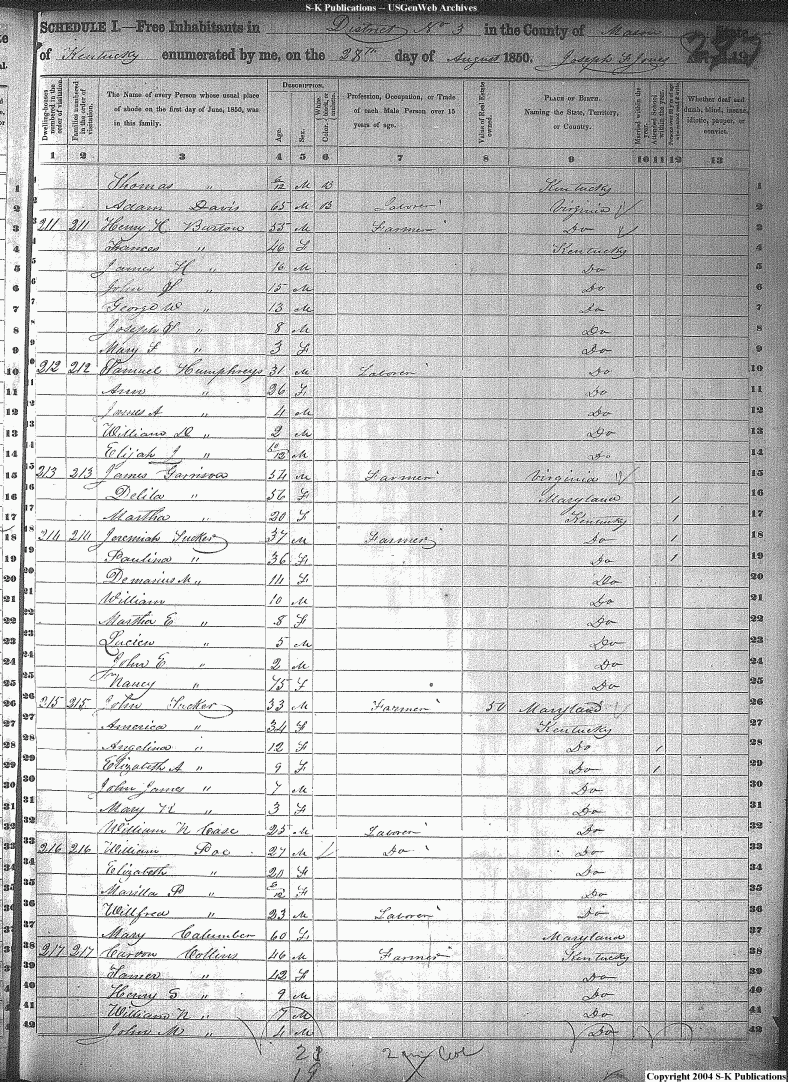 S-K Publications -- USGenWeb Archives
SCHEDULE I.—Free Inhabitants in District No 3 in the County of Mason State
of Kentucky enumerated by me, on the 28th day of August 1850. Joseph F. Jones
Dwelling-houses numbered in the order of visitation. Families numbered in the order of visitation. The Name of every Person whose usual place of abode on the first day of June, 1850, was in this family. DESCRIPTION. Age. Sex. Color Profession, Occupation, or Trade of each Male Person over 15 years of age. Value of Real Estate owned. PLACE OF BIRTH. Naming the State, Territory, or Country. Married within the year. Attended School within the year. Whether deaf and dumb, blind, insane, idiotic, pauper, or convict.
1 2 3 4 5 6 7 8 9 10 11 12 13
1 Thomas " /12 M B Kentucky 1
2 Adam Davis 65 M B Laborer Virginia 2
3 211 211 Henry H Burton 53 M Farmer Do 3
4 Frances " 46 F Kentucky 4
5 James H " 16 M Do 5
6 John " 15 M Do 6
7 George W " 13 M Do 7
8 Joseph " 8 M Do 8
9 Mary F " 3 F Do 9
10 212 212 Samuel Humphreys 31 M Laborer Do 10
11 Ann " 26 F Do 11
12 James A " 4 M Do 12
13 William D " 2 M Do 13
14 Elijah J " 10/12 M Do 14
15 213 213 James Garrison 54 M Farmer Virginia 15
16 Delila " 56 F Maryland 1 16
17 Martha " 20 F Kentucky 1 17
18 214 214 Jeremiah Tucker 37 M Farmer Do 1 18
19 Paulina " 36 F Do 1 19
20 Demarius M " 14 F Do 20
21 William 10 M Do 21
22 Martha E " 8 F Do 22
23 Lucien " 5 M Do 23
24 John E " 2 M Do 24
25 Nancy " 75 F Do 25
26 215 215 John Tucker 33 M Farmer 50 Maryland 26
27 America " 34 F Kentucky 27
28 Angelina " 12 F Do 1 28
29 Elizabeth A " 9 F Do 1 29
30 John James " 7 M Do 30
31 Mary " 3 F Do 31
32 William N Case 25 M Laborer Do 32
33 216 216 William Poe 27 M Do Do 33
34 Elizabeth " 20 F Do 34
35 Marilla P " /12 F Do 35
36 Willfred " 23 M Laborer Do 36
37 Mary Calumber 60 F Maryland 37
38 217 217 Carson Collins 46 M Farmer Kentucky 38
39 " 42 F Do 39
40 Henry S " 9 M Do 40
41 William N " 7 M Do 41
42 John M " 4 M Do 42
Copyright 2004 S-K Publications